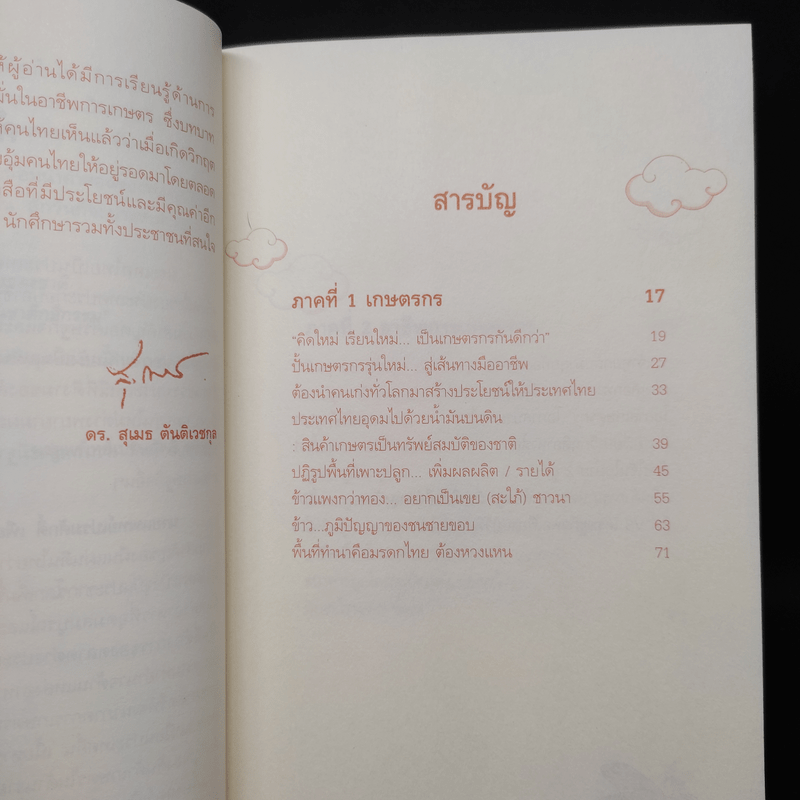 ผู้อ่านได้มีการเรียนรู้ด้านการ
ในอาชีพการเกษตร ซึ่งบทบาท
คนไทยเห็นแล้วว่าเมื่อเกิดวิกฤต
อุ้มคนไทยให้อยู่รอดมาโดยตลอด
สือที่มีประโยชน์และมีคุณค่าอีก
นักศึกษารวมทั้งประชาชนที่สนใจ
ดร. สุเมธ ตันติเวชกุล
สารบัญ
ภาคที่ 1 เกษตรกร 17
"คิดใหม่ เรียนใหม่... เป็นเกษตรกรกันดีกว่า" 19
ปั้นเกษตรกรรุ่นใหม่... สู่เส้นทางมืออาชีพ 27
ต้องนำคนเก่งทั่วโลกมาสร้างประโยชน์ให้ประเทศไทย 33
ประเทศไทยอุดมไปด้วยน้ำมันบนดิน
: สินค้าเกษตรเป็นทรัพย์สมบัติของชาติ 39
ปฏิรูปพื้นที่เพาะปลูก... เพิ่มผลผลิต / รายได้ 45
ข้าวแพงกว่าทอง... อยากเป็นเขย (สะใภ้) ชาวนา 55
ข้าว...ภูมิปัญญาของชนชายขอบ 63
พื้นที่ทำนาคือมรดกไทย ต้องหวงแหน 71